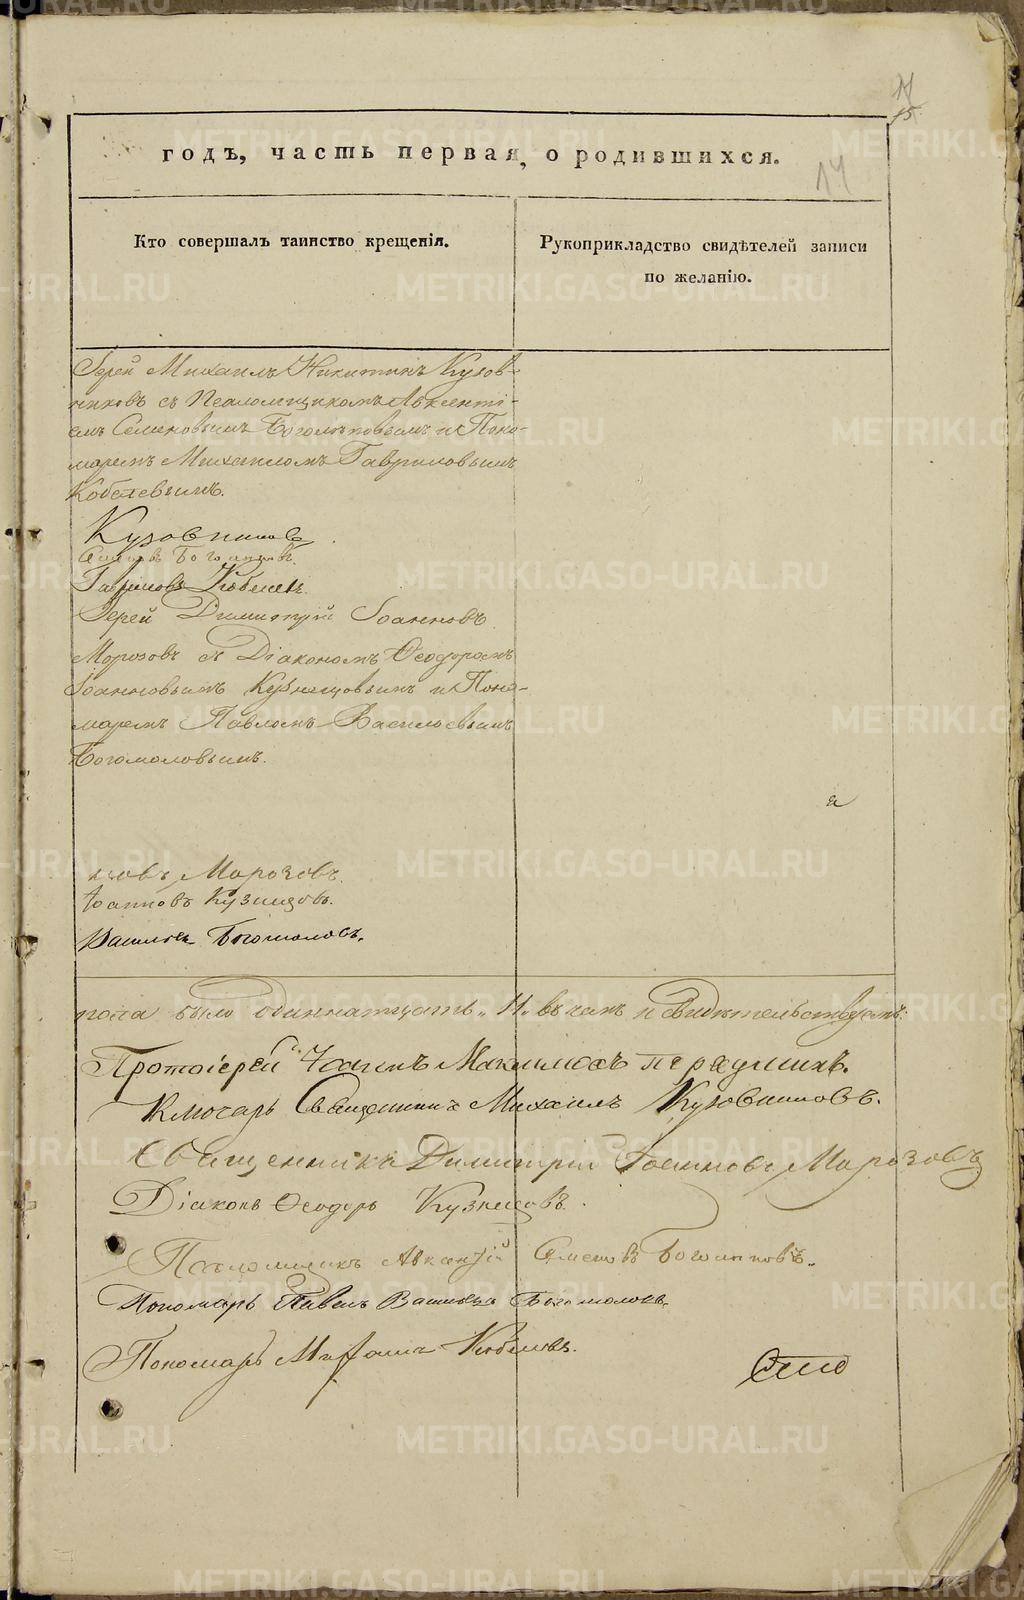 14
15
14
годъ, часть первая, о родившихся.
Кто совершалъ таинство крещенія.
Рукоприкладство свидѣтелей записи
по желанію.
Іерей Михаилъ Никитинъ Кузов-
никовъ съ Псаломщикомъ Авксенті-
емъ Семеновымъ Боголѣповымъ и Поно-
маремъ Михаиломъ Гавриловымъ
Кобелевымъ.
Кузовниковъ
Семеновъ Боголѣповъ.
Гавриловъ Кобелевъ.
Іерей Димитрій Іоанновъ
Морозовъ съ Діакономъ Ѳеодоромъ
Іоанновымъ Кузнецовымъ и Поно-
маремъ Павломъ Васильевымъ
Богомоловымъ.
Морозовъ.
Іоанновъ Кузнецовъ.
Васильевъ Богомоловъ.
пола было одиннатцать „11„ въ чемъ и свидѣтельствуемъ:
Протоіерей Іоаннъ
Ключарь Священникъ Михаилъ Кузовниковъ.
Священникъ Димитрій Іоанновъ Морозовъ
Діаконъ Ѳеодоръ Кузнецовъ.
Псаломщикъ Авксентій Семеновъ Боголѣповъ.
Пономарь Павелъ Васильевъ Богомоловъ.
Пономарь Михаилъ Кобелевъ.
METRIKI.GASO-URAL.RU